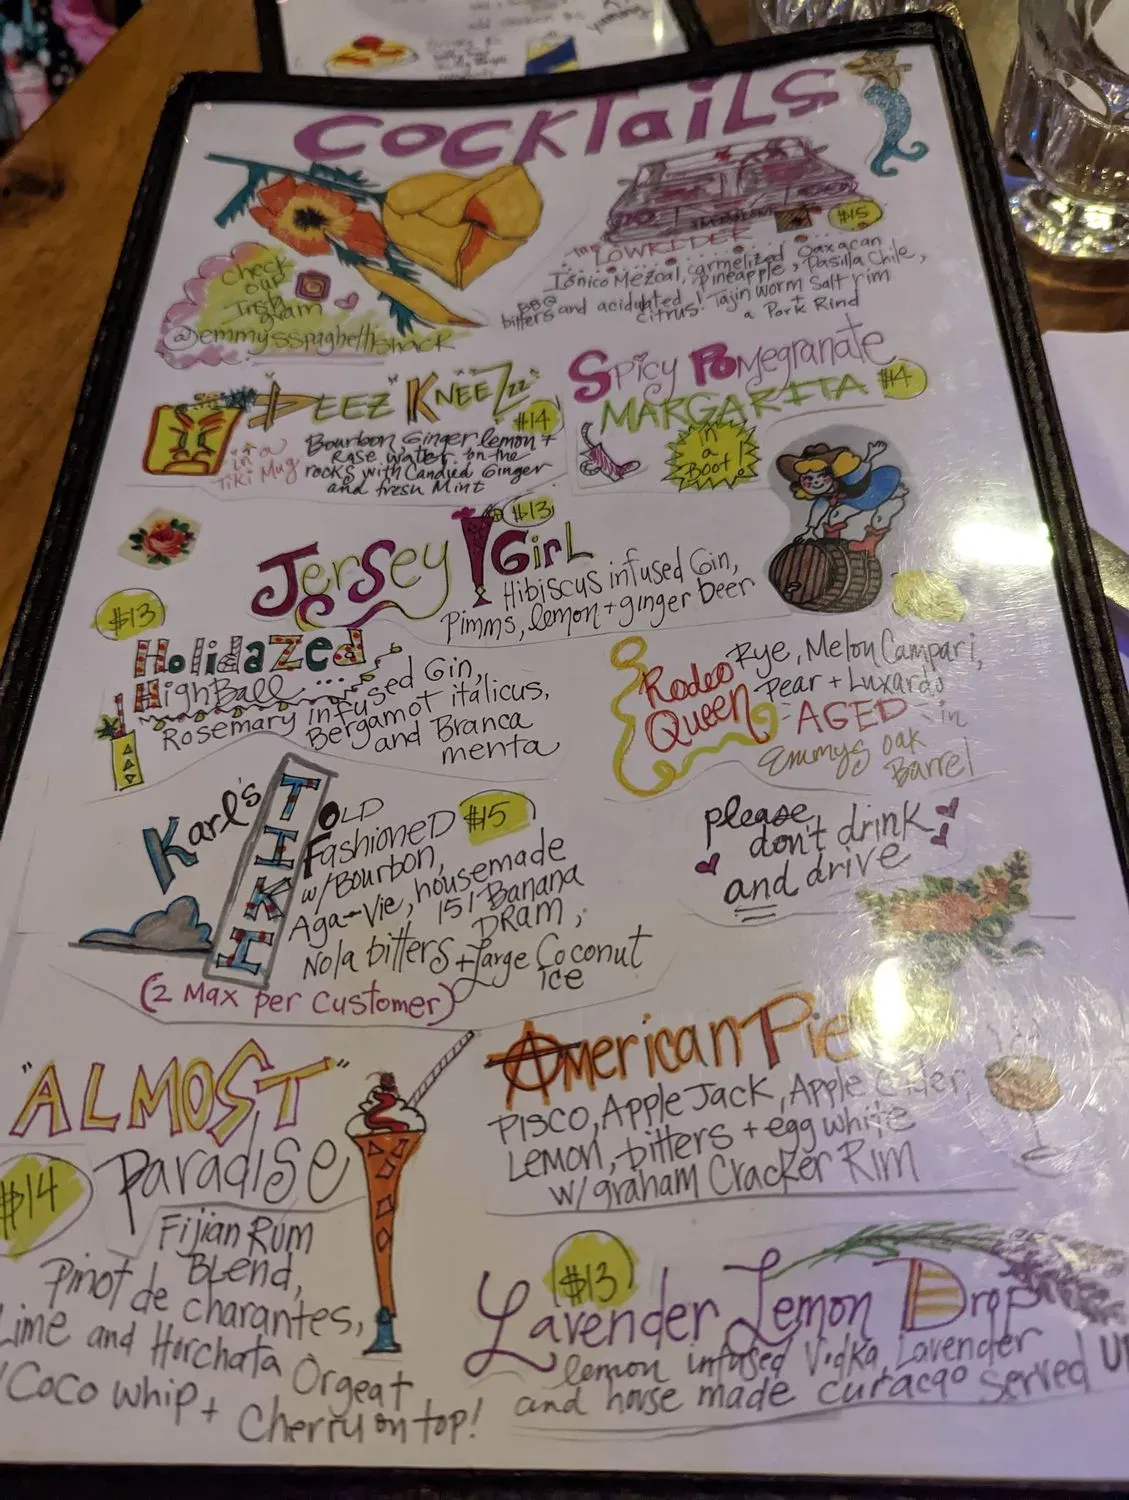 COCKTAILS
check
our
Insta
gram
@emmysspaghettishack
$15
THE LOWRIDER
Tónico Mezcal, carmelized Oaxacan
pineapple, Pasilla Chile,
BBQ bitters and acidulated citrus! Tajin worm Salt rim
+ a Pork Rind
"DEEZ" KNEEZzz"
$14
in a
Tiki Mug
Bourbon Ginger lemon +
Rose water, on the
rocks with Candied Ginger
and fresh Mint
Spicy Pomegranate
MARGARITA $14
in
a
Boot!
Jersey Girl
$13
Hibiscus infused Gin,
Pimms, lemon + ginger beer
$13
Holidazed
HighBall...
Rosemary infused Gin,
Bergamot italicus,
and Branca
menta
Rodeo
Queen
Rye, Melon Campari,
Pear + Luxardo
AGED in
Emmys oak
Barrel
Karl's
TIKI
OLD
Fashioned $15
w/Bourbon,
Aga-Vie, housemade
151-Banana
DRam,
Nola bitters + Large Coconut
ice
(2 Max per customer)
please
don't drink
and drive
"ALMOST"
Paradise
$14
Fijian Rum
Blend,
Pinot de charantes,
Lime and Horchata Orgeat
Coco whip + Cherry on top!
American Pie
PISCO, Apple Jack, Apple Cider,
Lemon, bitters + egg white
w/graham Cracker Rim
$13
Lavender Lemon Drop
lemon infused Vodka, Lavender
and house made curacao served